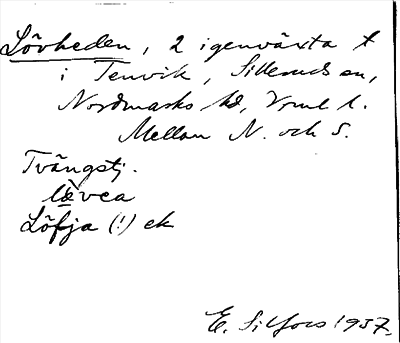 Lövheden, 2 igenväxta t
i Tenvik, Silleruds sn,
Nordmarks hd, Vrml l.
Mellan N. och S.
Tvängstj.
lævea
Löfja (!) ek
E. Silfors 1937.